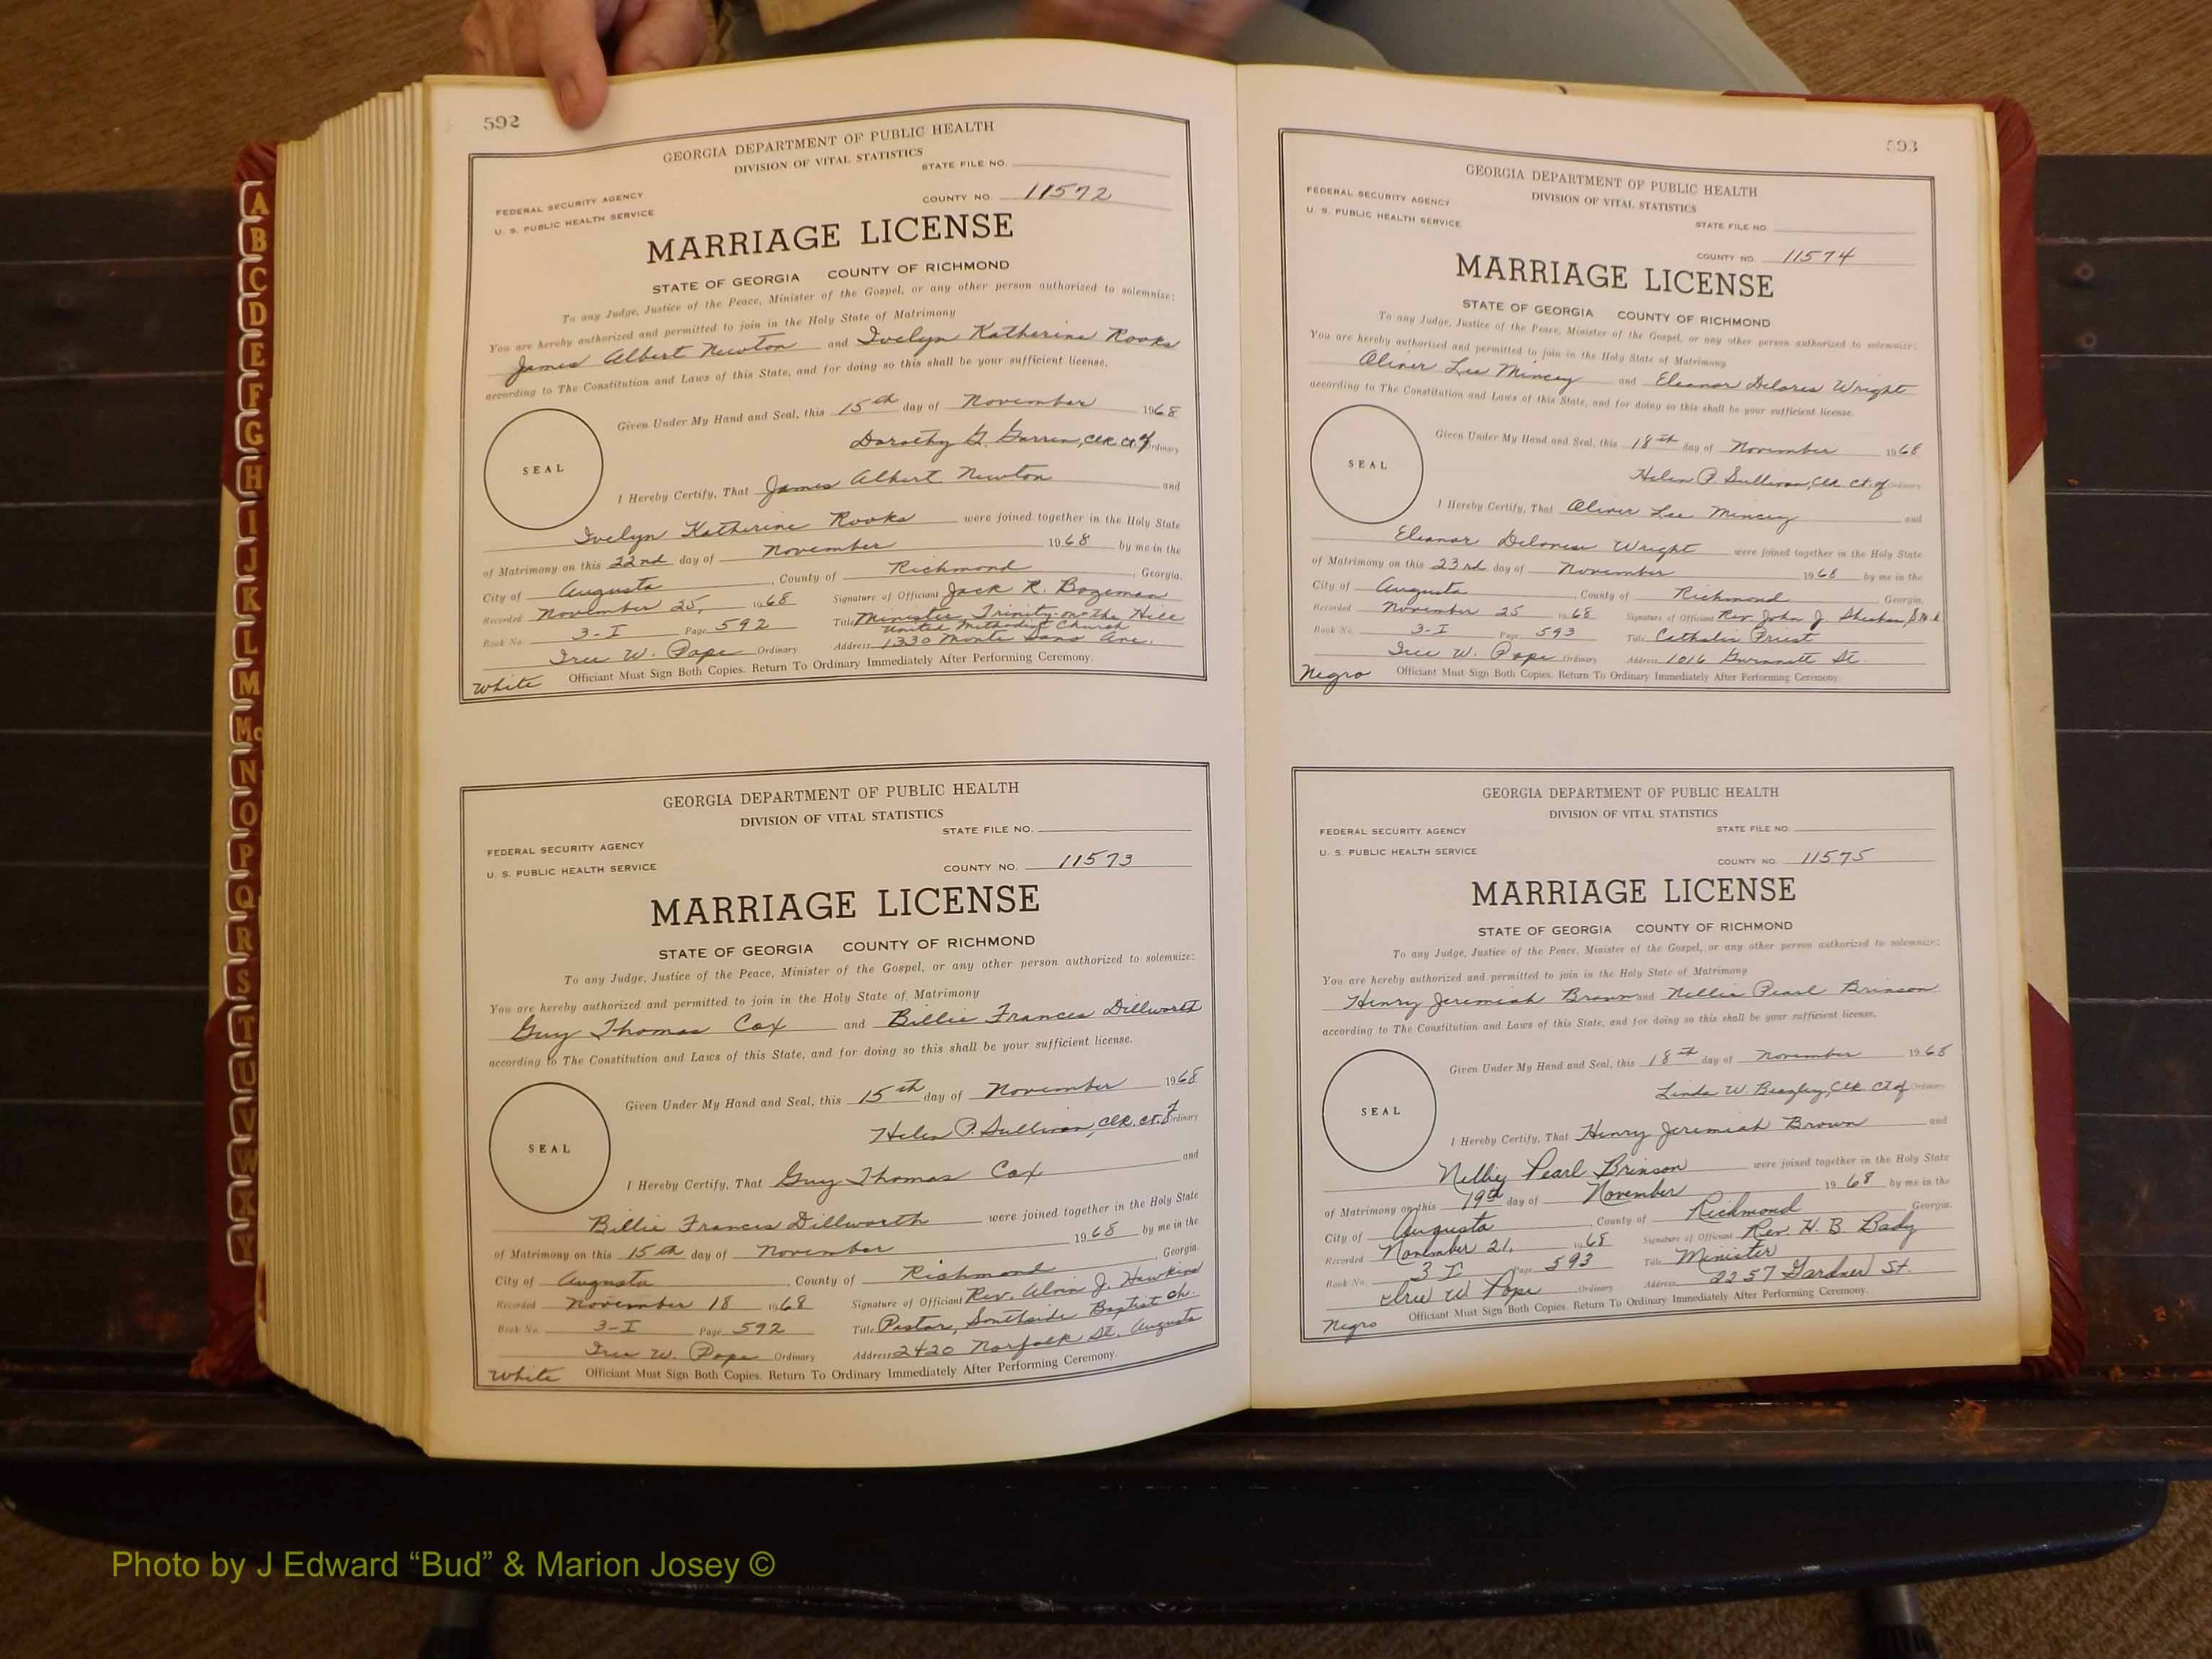 592
GEORGIA DEPARTMENT OF PUBLIC HEALTH
DIVISION OF VITAL STATISTICS
STATE FILE NO.
FEDERAL SECURITY AGENCY
U. S. PUBLIC HEALTH SERVICE
COUNTY NO. 11572
MARRIAGE LICENSE
STATE OF GEORGIA COUNTY OF RICHMOND
To any Judge, Justice of the Peace, Minister of the Gospel, or any other person authorized to solemnize;
You are hereby authorized and permitted to join in the Holy State of Matrimony
James Albert Newton and Ivelyn Katherine Rooks
according to The Constitution and Laws of this State, and for doing so this shall be your sufficient license.
Given Under My Hand and Seal, this 15th day of November 1968
Dorothy G. Clk. Ct. of Ordinary
SEAL
I Hereby Certify, That James Albert Newton and
Ivelyn Katherine Rooks were joined together in the Holy State
of Matrimony on this 22nd day of November 1968 by me in the
City of Augusta, County of Richmond, Georgia.
Recorded November 25, 1968 Signature of Officiant Jack R. Bozeman
Book No. 3-I Page 592 Title Minister Trinity-on-the Hill
United Methodist Church
Iree W. Pope Ordinary Address 1330 Monte Sano Ave.
White Officiant Must Sign Both Copies. Return To Ordinary Immediately After Performing Ceremony.
GEORGIA DEPARTMENT OF PUBLIC HEALTH
DIVISION OF VITAL STATISTICS
STATE FILE NO.
FEDERAL SECURITY AGENCY
U. S. PUBLIC HEALTH SERVICE
COUNTY NO. 11573
MARRIAGE LICENSE
STATE OF GEORGIA COUNTY OF RICHMOND
To any Judge, Justice of the Peace, Minister of the Gospel, or any other person authorized to solemnize:
You are hereby authorized and permitted to join in the Holy State of Matrimony
Guy Thomas Cox and Billie Frances Dillworth
according to The Constitution and Laws of this State, and for doing so this shall be your sufficient license.
Given Under My Hand and Seal, this 15th day of November 1968
Helen P. Sullivan, Clk. Ct. of Ordinary
SEAL
I Hereby Certify, That Guy Thomas Cox and
Billie Frances Dillworth were joined together in the Holy State
of Matrimony on this 15th day of November 1968 by me in the
City of Augusta, County of Richmond Georgia.
Recorded November 18 1968 Signature of Officiant Rev. Alvin J. Hawkins
Book No. 3-I Page 592 Title Pastor, Southside Baptist Ch.
Iree W. Pope Ordinary Address 2420 Norfolk St. Augusta
White Officiant Must Sign Both Copies. Return To Ordinary Immediately After Performing Ceremony.
593
GEORGIA DEPARTMENT OF PUBLIC HEALTH
DIVISION OF VITAL STATISTICS
FEDERAL SECURITY AGENCY
U. S. PUBLIC HEALTH SERVICE
STATE FILE NO.
COUNTY NO. 11574
MARRIAGE LICENSE
STATE OF GEORGIA COUNTY OF RICHMOND
To any Judge, Justice of the Peace, Minister of the Gospel, or any other person authorized to solemnize:
You are hereby authorized and permitted to join in the Holy State of Matrimony
Oliver Lee Mincey and Eleanor Delores Wright
according to The Constitution and Laws of this State, and for doing so this shall be your sufficient license.
Given Under My Hand and Seal, this 18th day of November 1968
Helen P. Sullivan, Clk. Ct. of Ordinary
SEAL
I Hereby Certify, That Oliver Lee Mincey and
Eleanor Wright were joined together in the Holy State
of Matrimony on this 23rd day of November 1968 by me in the
City of Augusta, County of Richmond Georgia.
Recorded November 25 1968 Signature of Officiant Rev. John J.
Book No. 3-I Page 593 Title Catholic Priest
Iree W. Pope Ordinary Address 1016 Gwinnett St.
Negro Officiant Must Sign Both Copies. Return To Ordinary Immediately After Performing Ceremony.
GEORGIA DEPARTMENT OF PUBLIC HEALTH
DIVISION OF VITAL STATISTICS
FEDERAL SECURITY AGENCY STATE FILE NO.
U. S. PUBLIC HEALTH SERVICE
COUNTY NO. 11575
MARRIAGE LICENSE
STATE OF GEORGIA COUNTY OF RICHMOND
To any Judge, Justice of the Peace, Minister of the Gospel, or any other person authorized to solemnize;
You are hereby authorized and permitted to join in the Holy State of Matrimony
Henry Jeremiah Brown and Nellie Pearl Brinson
according to The Constitution and Laws of this State, and for doing so this shall be your sufficient license.
Given Under My Hand and Seal, this 18th day of November 1968
Linda W. Beazley, Clk. Ct. of Ordinary
SEAL
I Hereby Certify, That Henry Jeremiah Brown and
Nellie Pearl Brinson were joined together in the Holy State
of Matrimony on this 19th day of November 1968 by me in the
City of Augusta, County of Richmond Georgia.
Recorded November 21, 1968 Signature of Officiant Rev. H. B. Bady
Book No. 3 I Page 593 Title Minister
Iree W Pope Ordinary Address 2257 Gardner St.
Negro Officiant Must Sign Both Copies. Return To Ordinary Immediately After Performing Ceremony.
A
B
C
D
E
F
G
H
I
J
K
L
M
Mc
N
O
P
Q
R
S
T
U
V
W
X
Y
Photo by J Edward “Bud” & Marion Josey ©